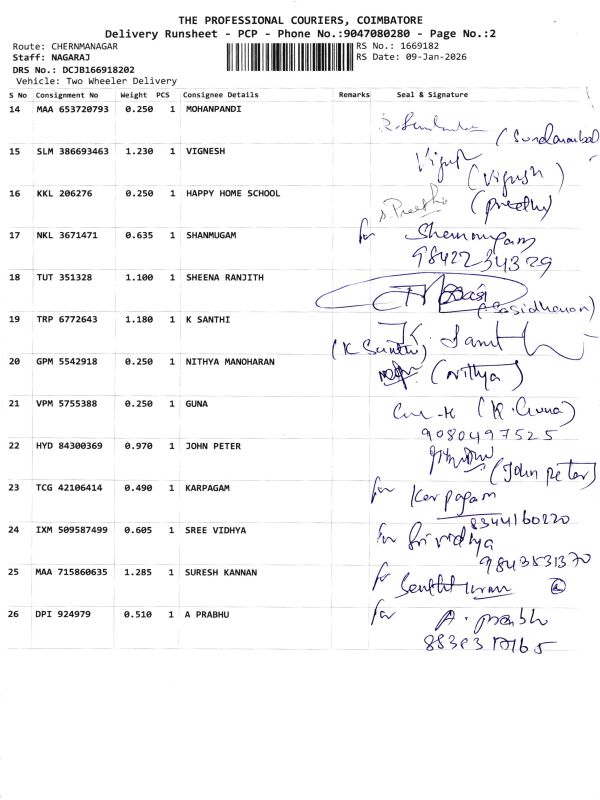 THE PROFESSIONAL COURIERS, COIMBATORE
Delivery Runsheet - PCP - Phone No.:9047080280 - Page No.:2
Route: CHERNMANAGAR
RS No.: 1669182
Staff: NAGARAJ
RS Date: 09-Jan-2026
DRS No.: DCJB166918202
Vehicle: Two Wheeler Delivery
S No Consignment No Weight PCS Consignee Details Remarks Seal & Signature
14 MAA 653720793 0.250 1 MOHANPANDI
15 SLM 386693463 1.230 1 VIGNESH
(Vignesh)
16 KKL 206276 0.250 1 HAPPY HOME SCHOOL
S. Preetha (preetha)
17 NKL 3671471 0.635 1 SHANMUGAM for Shanmugam
9842234329
18 TUT 351328 1.100 1 SHEENA RANJITH
(Sasidharan)
19 TRP 6772643 1.180 1 K SANTHI
(K Santhi)
20 GPM 5542918 0.250 1 NITHYA MANOHARAN
(Nithya)
21 VPM 5755388 0.250 1 GUNA
(K. Guna)
9080497525
22 HYD 84300369 0.970 1 JOHN PETER
(John peter)
23 TCG 42106414 0.490 1 KARPAGAM for Karpagam
8344160220
24 IXM 509587499 0.605 1 SREE VIDHYA for Srividhya
9843531370
25 MAA 715860635 1.285 1 SURESH KANNAN for
26 DPI 924979 0.510 1 A PRABHU for A. prabh